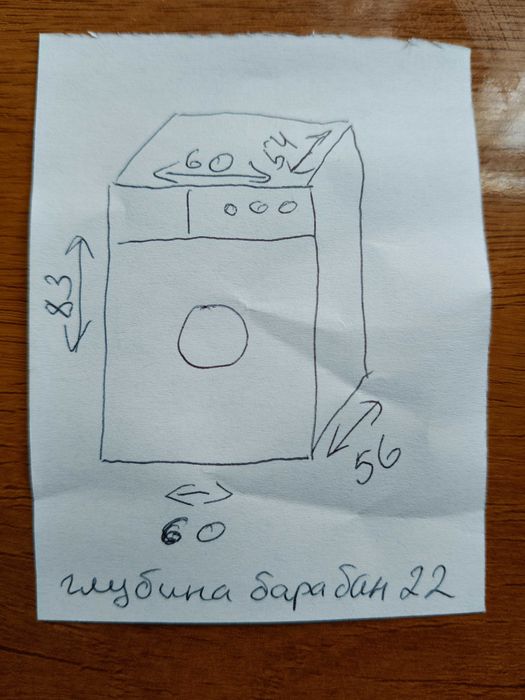 60
54
83
56
60
глубина барабан 22